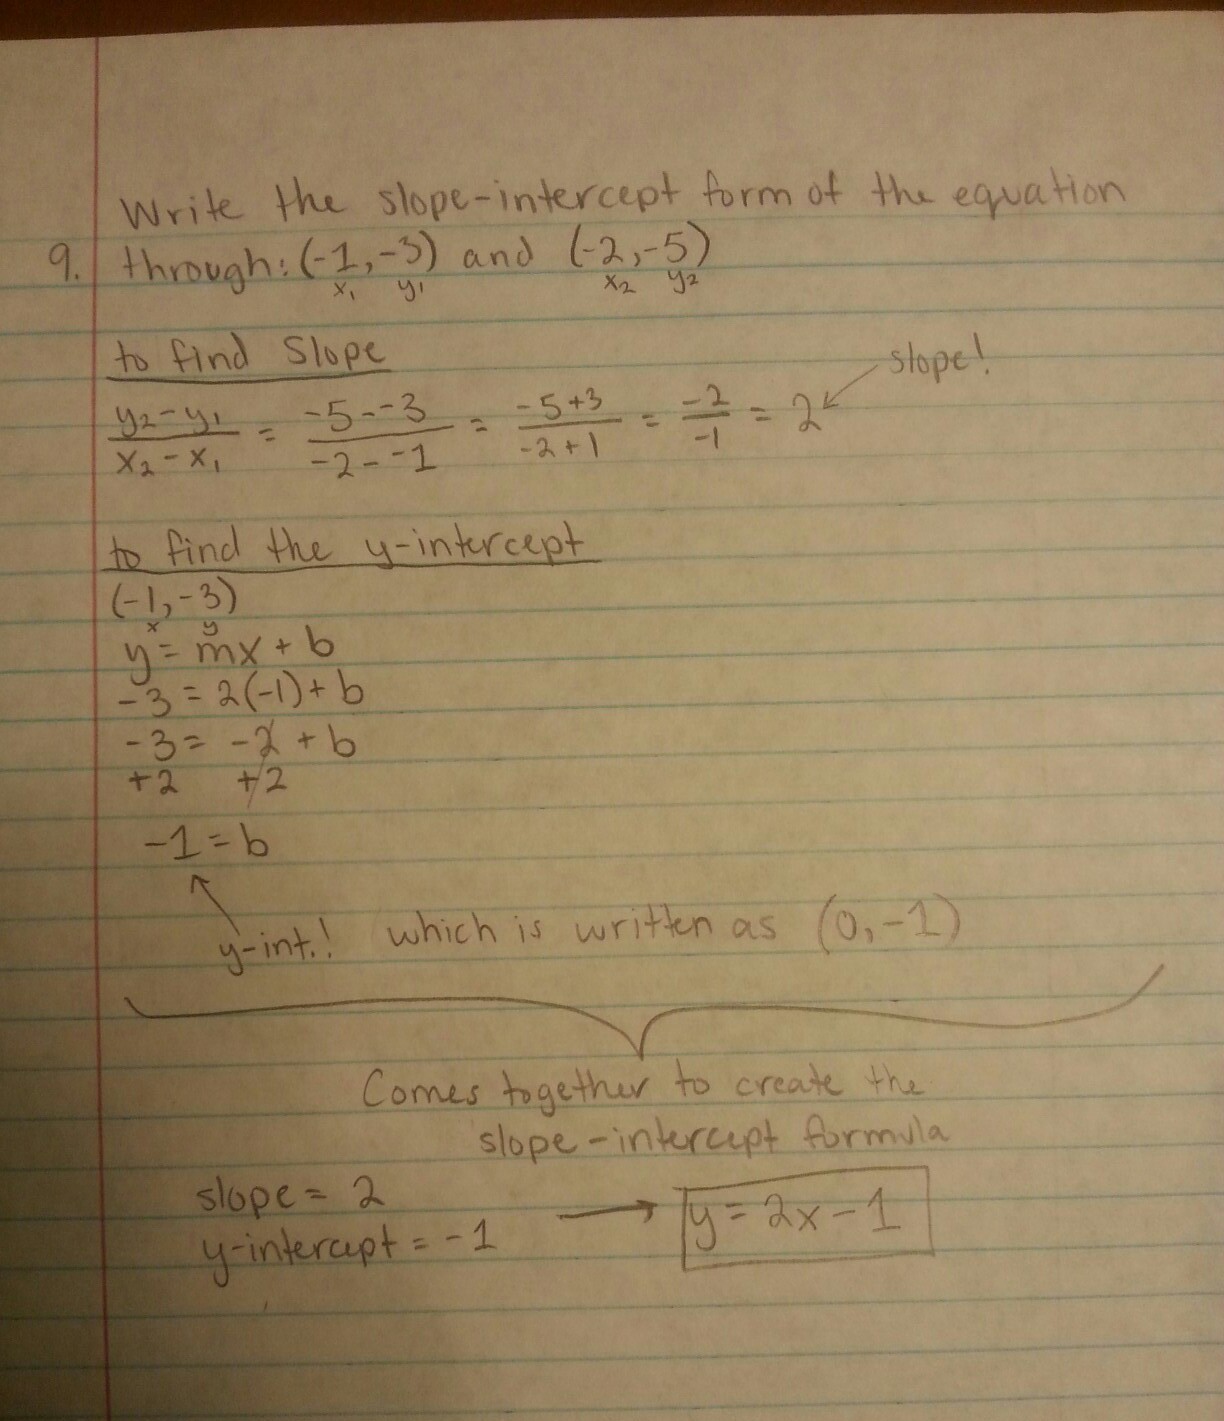 Write the slope-intercept form of the equation
9. through: (-1,-3) and (-2,-5)
x₁ y₁ x₂ y₂
to find Slope
slope!
y₂-y₁/x₂-x₁ = -5--3/-2--1 = -5+3/-2+1 = -2/-1 = 2
to find the y-intercept
(-1,-3)
x y
y = mx + b
-3 = 2(-1) + b
-3 = -2 + b
+2 +2
-1 = b
y-int.! which is written as (0,-1)
Comes together to create the
slope-intercept formula
slope = 2
y-intercept = -1
y = 2x - 1